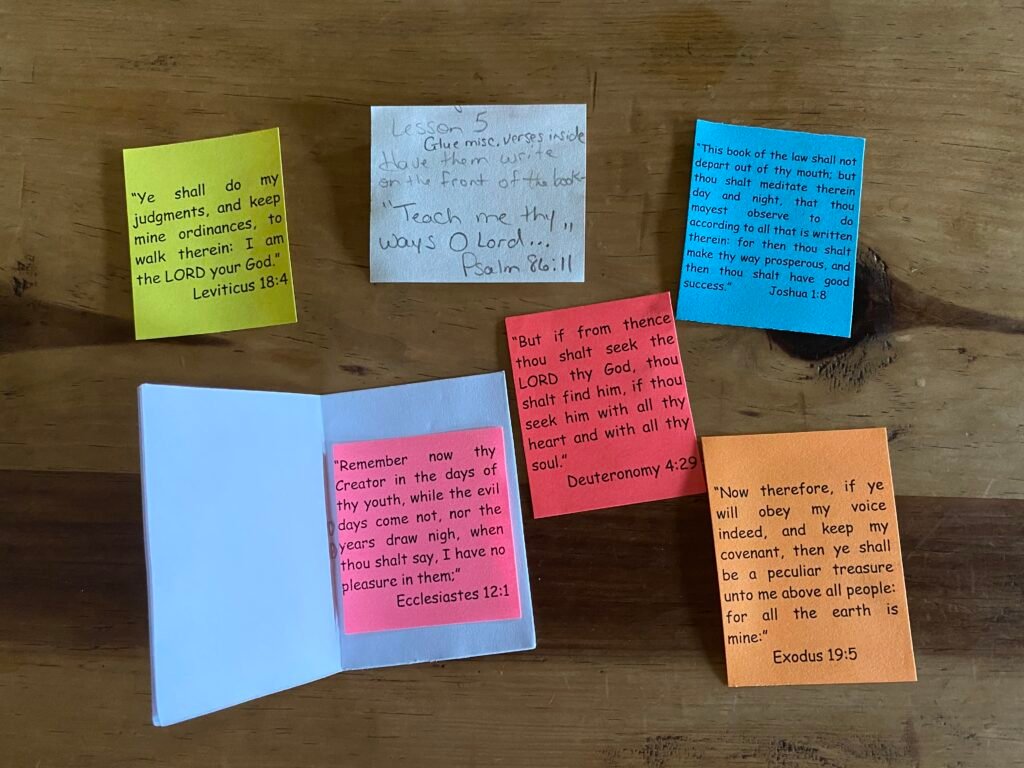 "Ye shall do my
judgments, and keep
mine ordinances, to
walk therein: I am
the LORD your God."
Leviticus 18:4
Lesson 5
Glue misc. verses inside
Have them write
on the front of the book-
"Teach me thy
ways O Lord..."
Psalm 86:11
"This book of the law shall not
depart out of thy mouth; but
thou shalt meditate therein
day and night, that thou
mayest observe to do
according to all that is written
therein: for then thou shalt
make thy way prosperous, and
then thou shalt have good
success." Joshua 1:8
"But if from thence
thou shalt seek the
LORD thy God, thou
shalt find him, if thou
seek him with all thy
heart and with all thy
soul."
Deuteronomy 4:29
"Remember now thy
Creator in the days of
thy youth, while the evil
days come not, nor the
years draw nigh, when
thou shalt say, I have no
pleasure in them;"
Ecclesiastes 12:1
"Now therefore, if ye
will obey my voice
indeed, and keep my
covenant, then ye shall
be a peculiar treasure
unto me above all people:
for all the earth is
mine:"
Exodus 19:5